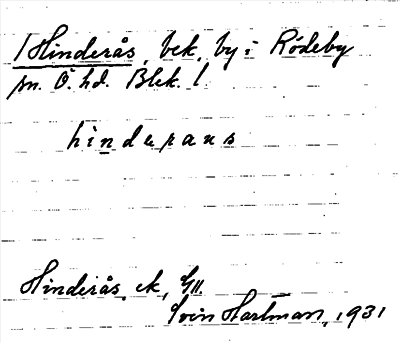 /Hinderås, bek, by i Rödeby
sn. Ö. hd. Blek. /
hinderaus
Hinderås, ek, GII.
Sven Hartman, 1931